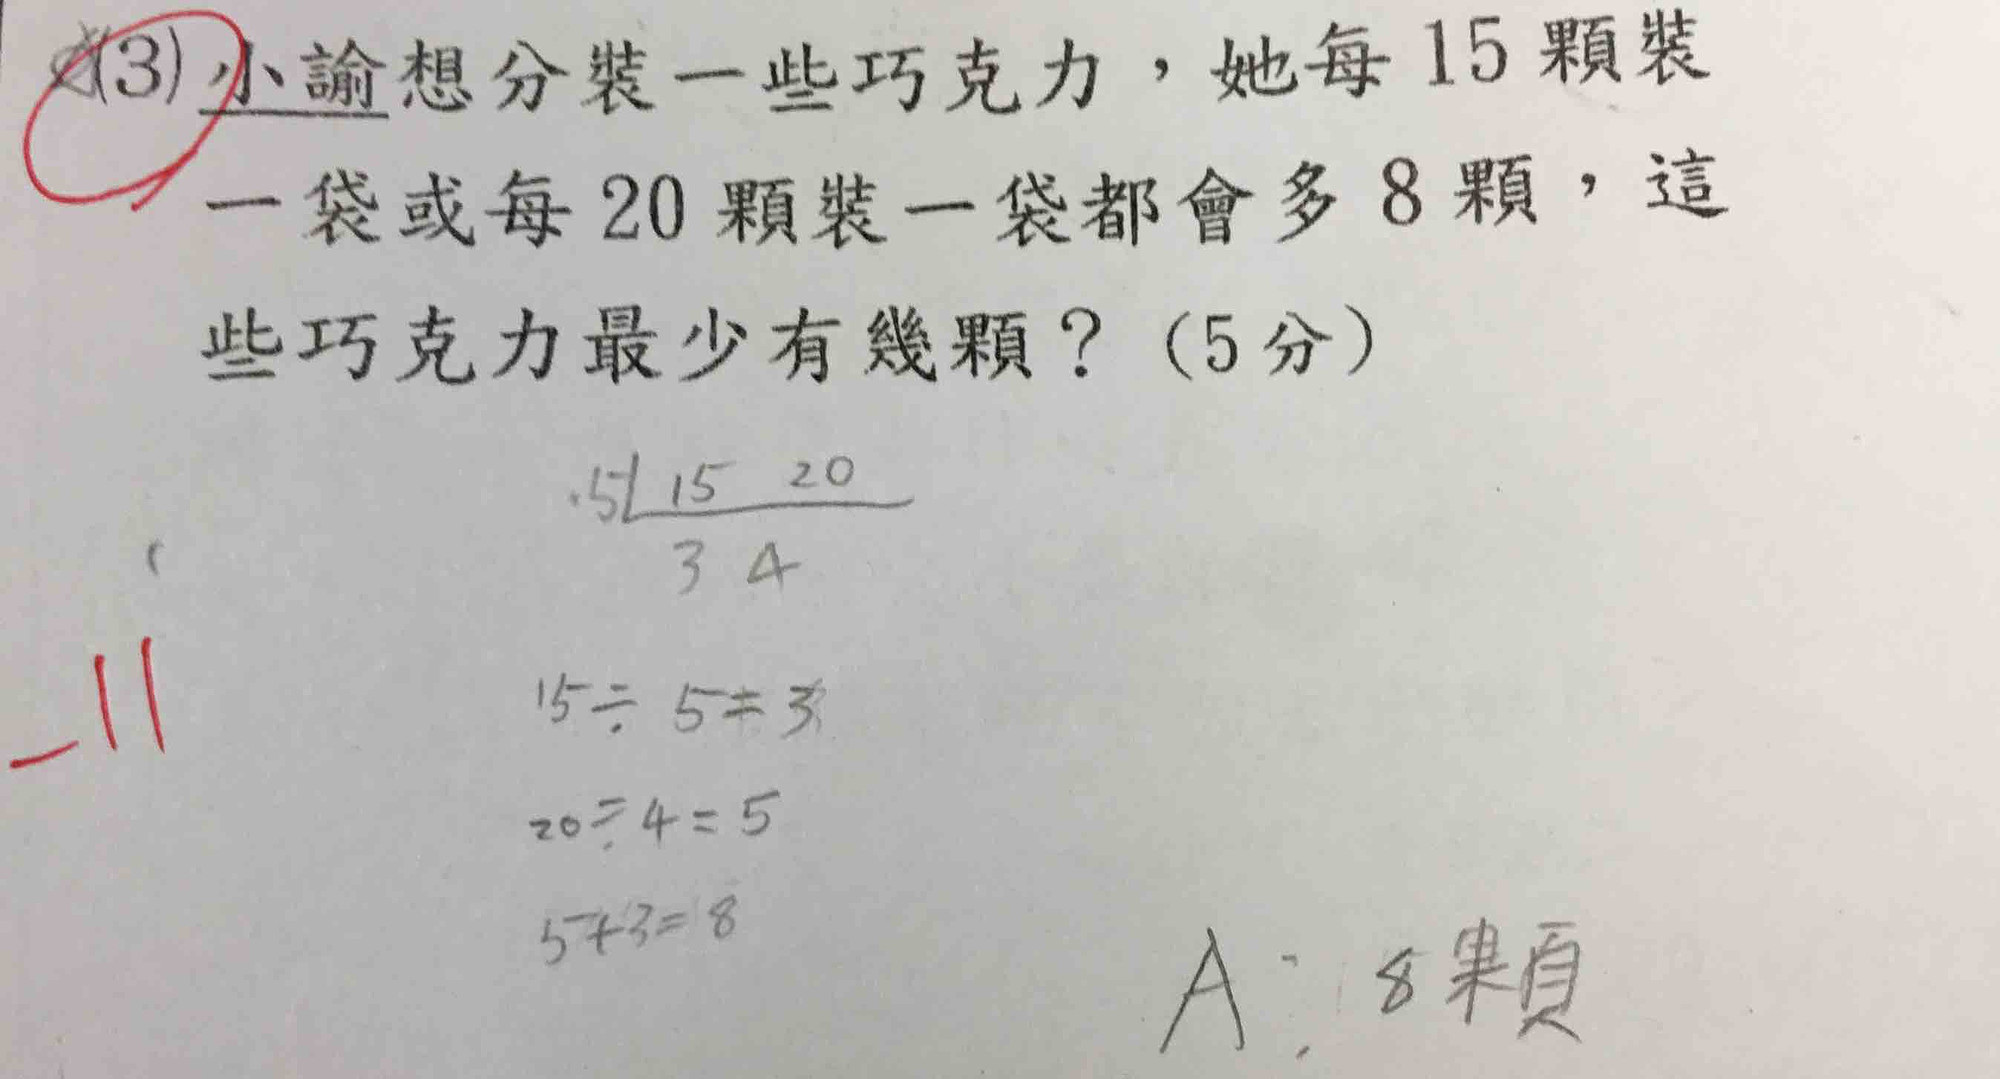 (3) 小諭想分裝一些巧克力，她每15顆裝
一袋或每20顆裝一袋都會多8顆，這
些巧克力最少有幾顆？（5分）
5 15 20
3 4
15÷5=3
-11
20÷4=5
5+3=8
A：8顆